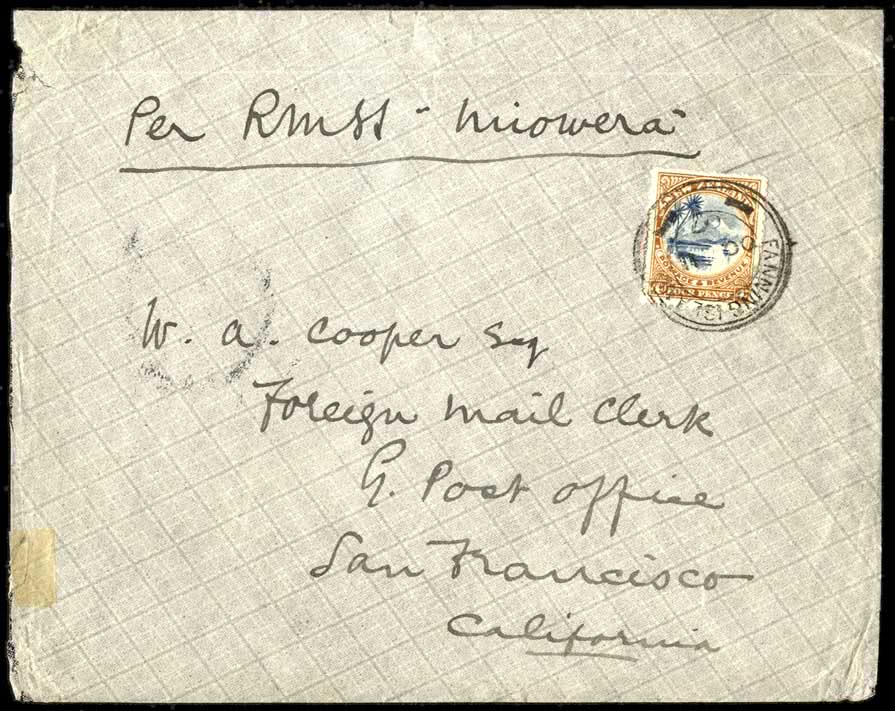 Per RMSS "Miowera"
NEW ZEALAND
POSTAGE & REVENUE
FOUR PENCE
FANNING ISL
W. A. Cooper Esq
Foreign Mail Clerk
G. Post Office
San Francisco
California